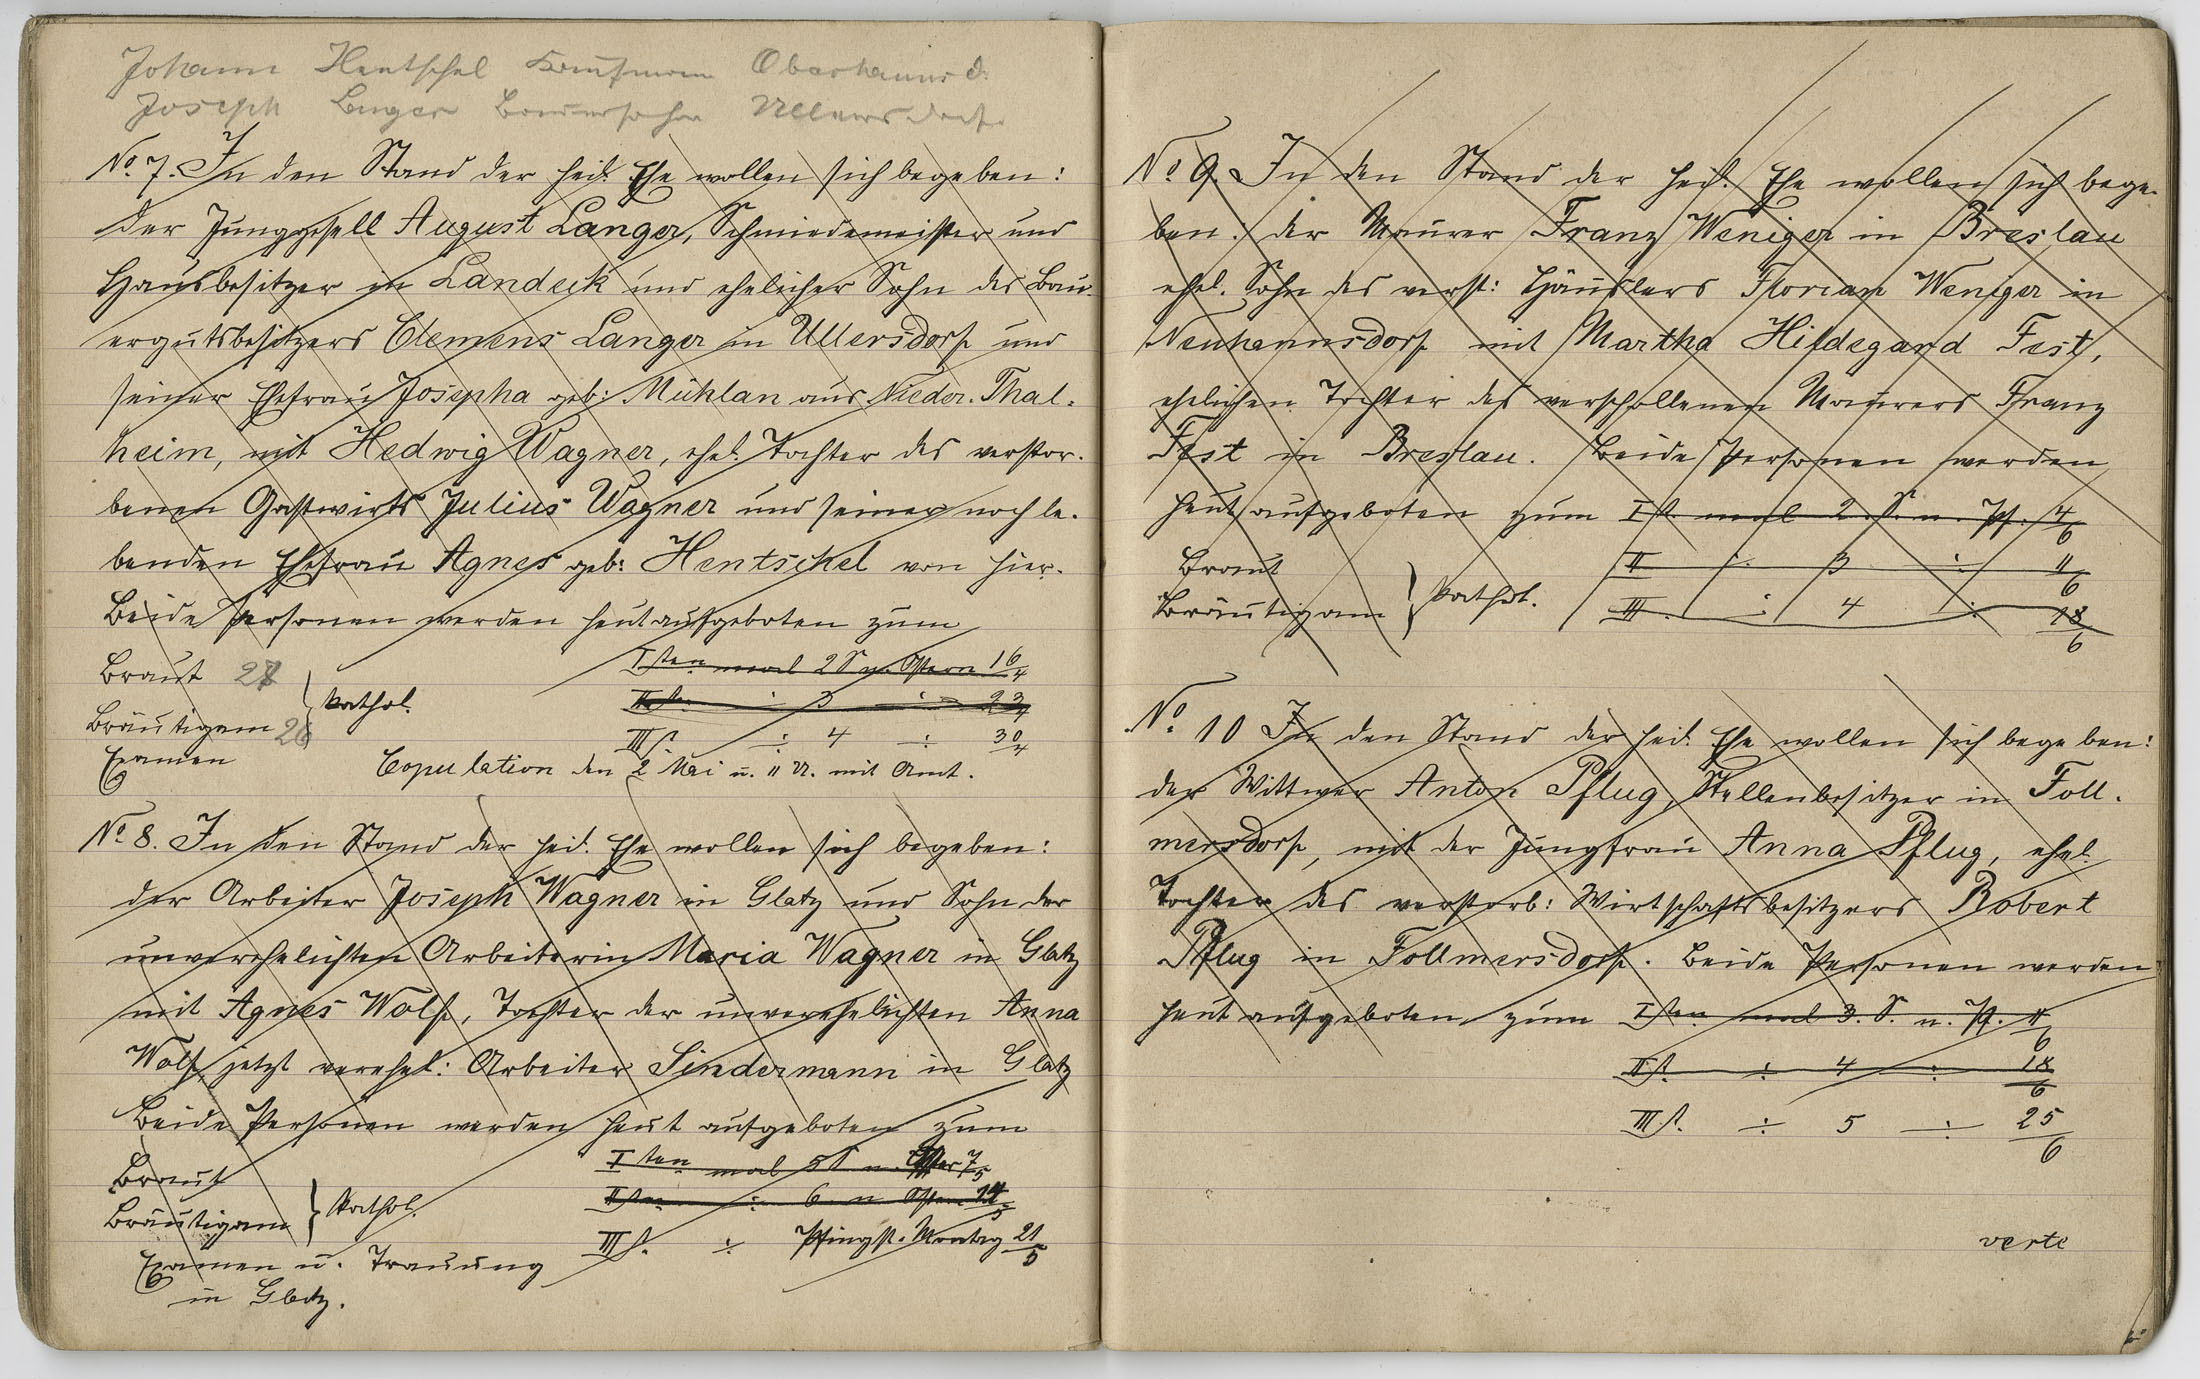 Johann Hentschel Kaufmann Oberhannsd.
Joseph Langer Bauersohn Ullersdorf.
No. 7. In den Stand der heil. Ehe wollen sich begeben:
der Junggesell August Langer, Schmiedemeister und
Hausbesitzer in Landeck und ehelicher Sohn des Bau-
ergutsbesitzers Clemens Langer in Ullersdorf und
seiner Ehefrau Josepha geb: Mühlan aus Nieder-Thal-
heim, mit Hedwig Wagner, ehel. Tochter des verstor-
benen Gastwirts Julius Wagner und seiner noch le-
benden Ehefrau Agnes geb: Hentschel von hier.
Beide Personen werden heut aufgeboten zum
Braut 27
Bräutigam 26
} kathol.
Iten mal 2 S n. Ostern 16/4
IIt. ÷ 3 ÷ 23/4
IIIt. ÷ 4 ÷ 30/4
Examen
Copulation den 2 Mai u. 11 U. mit Amt.
No. 8. In den Stand der heil. Ehe wollen sich begeben:
der Arbeiter Joseph Wagner in Glatz und Sohn der
unverehelichten Arbeiterin Maria Wagner in Glatz
mit Agnes Wolf, Tochter der unverehelichten Anna
Wolf, jetzt verehel: Arbeiter Sindermann in Glatz
Beide Personen werden heut aufgeboten zum
Braut
Bräutigam
} kathol.
Iten mal 5 S n. Oster 7/5
IIten ÷ 6 n Ostern 14/5
IIIt. ÷ Pfingst-Montag 21/5
Examen u. Trauung
in Glatz.
No. 9. In den Stand der heil. Ehe wollen sich bege-
ben: der Maurer Franz Weniger in Breslau
ehel. Sohn des verst: Häuslers Florian Weniger in
Neuhannsdorf mit Martha Hildegard Fest,
ehelichen Tochter des verschollenen Maurers Franz
Fest in Breslau. Beide Personen werden
heut aufgeboten zum It. mal 2. S. n. Pf. 4/6
Braut
Bräutigam
} kathol.
II ÷ 3 ÷ 11/6
III. ÷ 4 ÷ 18/6
No. 10 In den Stand der heil. Ehe wollen sich begeben:
der Wittwer Anton Pflug, Stellenbesitzer in Foll-
mersdorf, mit der Jungfrau Anna Pflug, ehel.
Tochter des verstorb: Wirtschaftsbesitzers Robert
Pflug in Follmersdorf. Beide Personen werden
heut aufgeboten zum Iten mal 3. S. n. Pf. 11/6
IIt. ÷ 4 ÷ 18/6
IIIt. ÷ 5 ÷ 25/6
verte